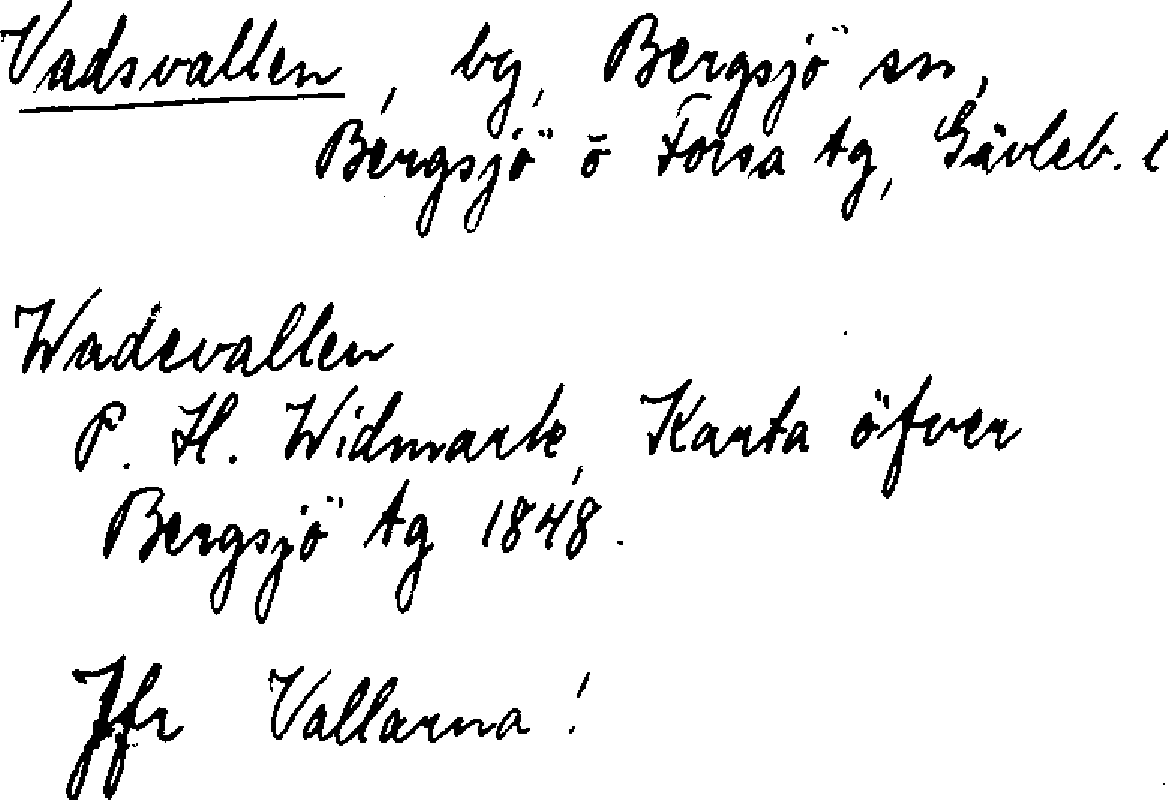 Vadsvallen, by, Bergsjö sn,
Bergsjö o Forsa tg, Gävleb. l
Wadsvallen
P. H. Widmark, Karta öfver
Bergsjö tg 1848.
Jfr Vallarna!